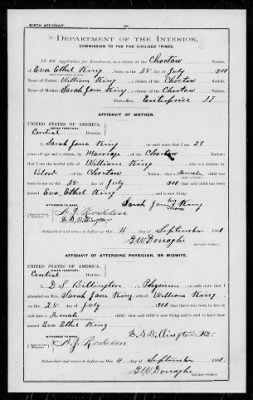 BIRTH AFFIDAVIT.
DEPARTMENT OF THE INTERIOR,
COMMISSION TO THE FIVE CIVILIZED TRIBES.
IN RE Application for Enrollment, as a citizen of the Choctaw Nation,
of Eva Ethel King, born on the 25 day of July, 190
Name of Father: William King, a citizen of the Choctaw Nation.
Name of Mother: Sarah Jane King, a citizen of the Choctaw Nation.
Post-office, Enterprise I.T.
AFFIDAVIT OF MOTHER.
UNITED STATES OF AMERICA,
INDIAN TERRITORY,
Central District.
I, Sarah Jane King, on oath state that I am 25
years of age and a citizen, by Marriage, of the Choctaw Nation;
that I am the lawful wife of William King, who is a citizen, by
Blood, of the Choctaw Nation; that a female child was
born to me on the 25 day of July, 190 ; that said child has been
named Eva Ethel King, and is now living.
Sarah Jane King
her mark
WITNESSES TO MARK:
D. S. Billington
Subscribed and sworn to before me this 4 day of September, 190
G W Donaghe
NOTARY PUBLIC.
AFFIDAVIT OF ATTENDING PHYSICIAN, OR MIDWIFE.
UNITED STATES OF AMERICA,
INDIAN TERRITORY,
Central District.
I, D. S. Billington, a Physician, on oath state that I
attended on Mrs. Sarah Jane King, wife of William King
on the 25 day of July, 190 ; that there was born to her on
said date a Female child; that said child is now living and is said to have been
named Eva Ethel King
D. S. Billington M.D.
WITNESSES TO MARK:
Subscribed and sworn to before me this 4 day of September, 190
G W Donaghe
NOTARY PUBLIC.